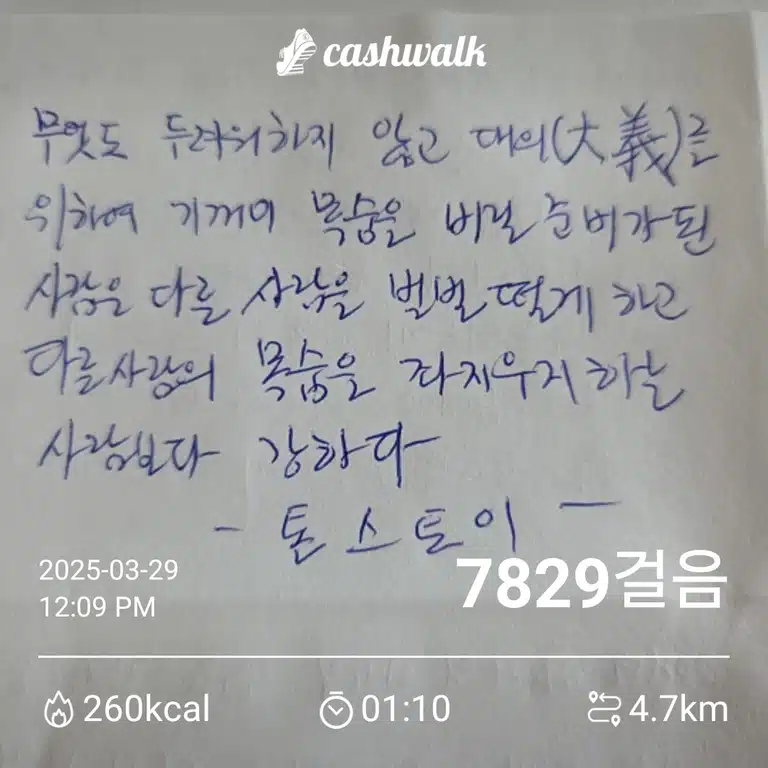 cashwalk
무엇도 두려워하지 않고 대의(大義)를
위하여 기꺼이 목숨을 버릴 준비가 된
사람은 다른 사람을 벌벌 떨게 하고
다른사람의 목숨을 좌지우지 하는
사람보다 강하다
- 톨스토이 -
2025-03-29
12:09 PM
7829걸음
260kcal 01:10 4.7km